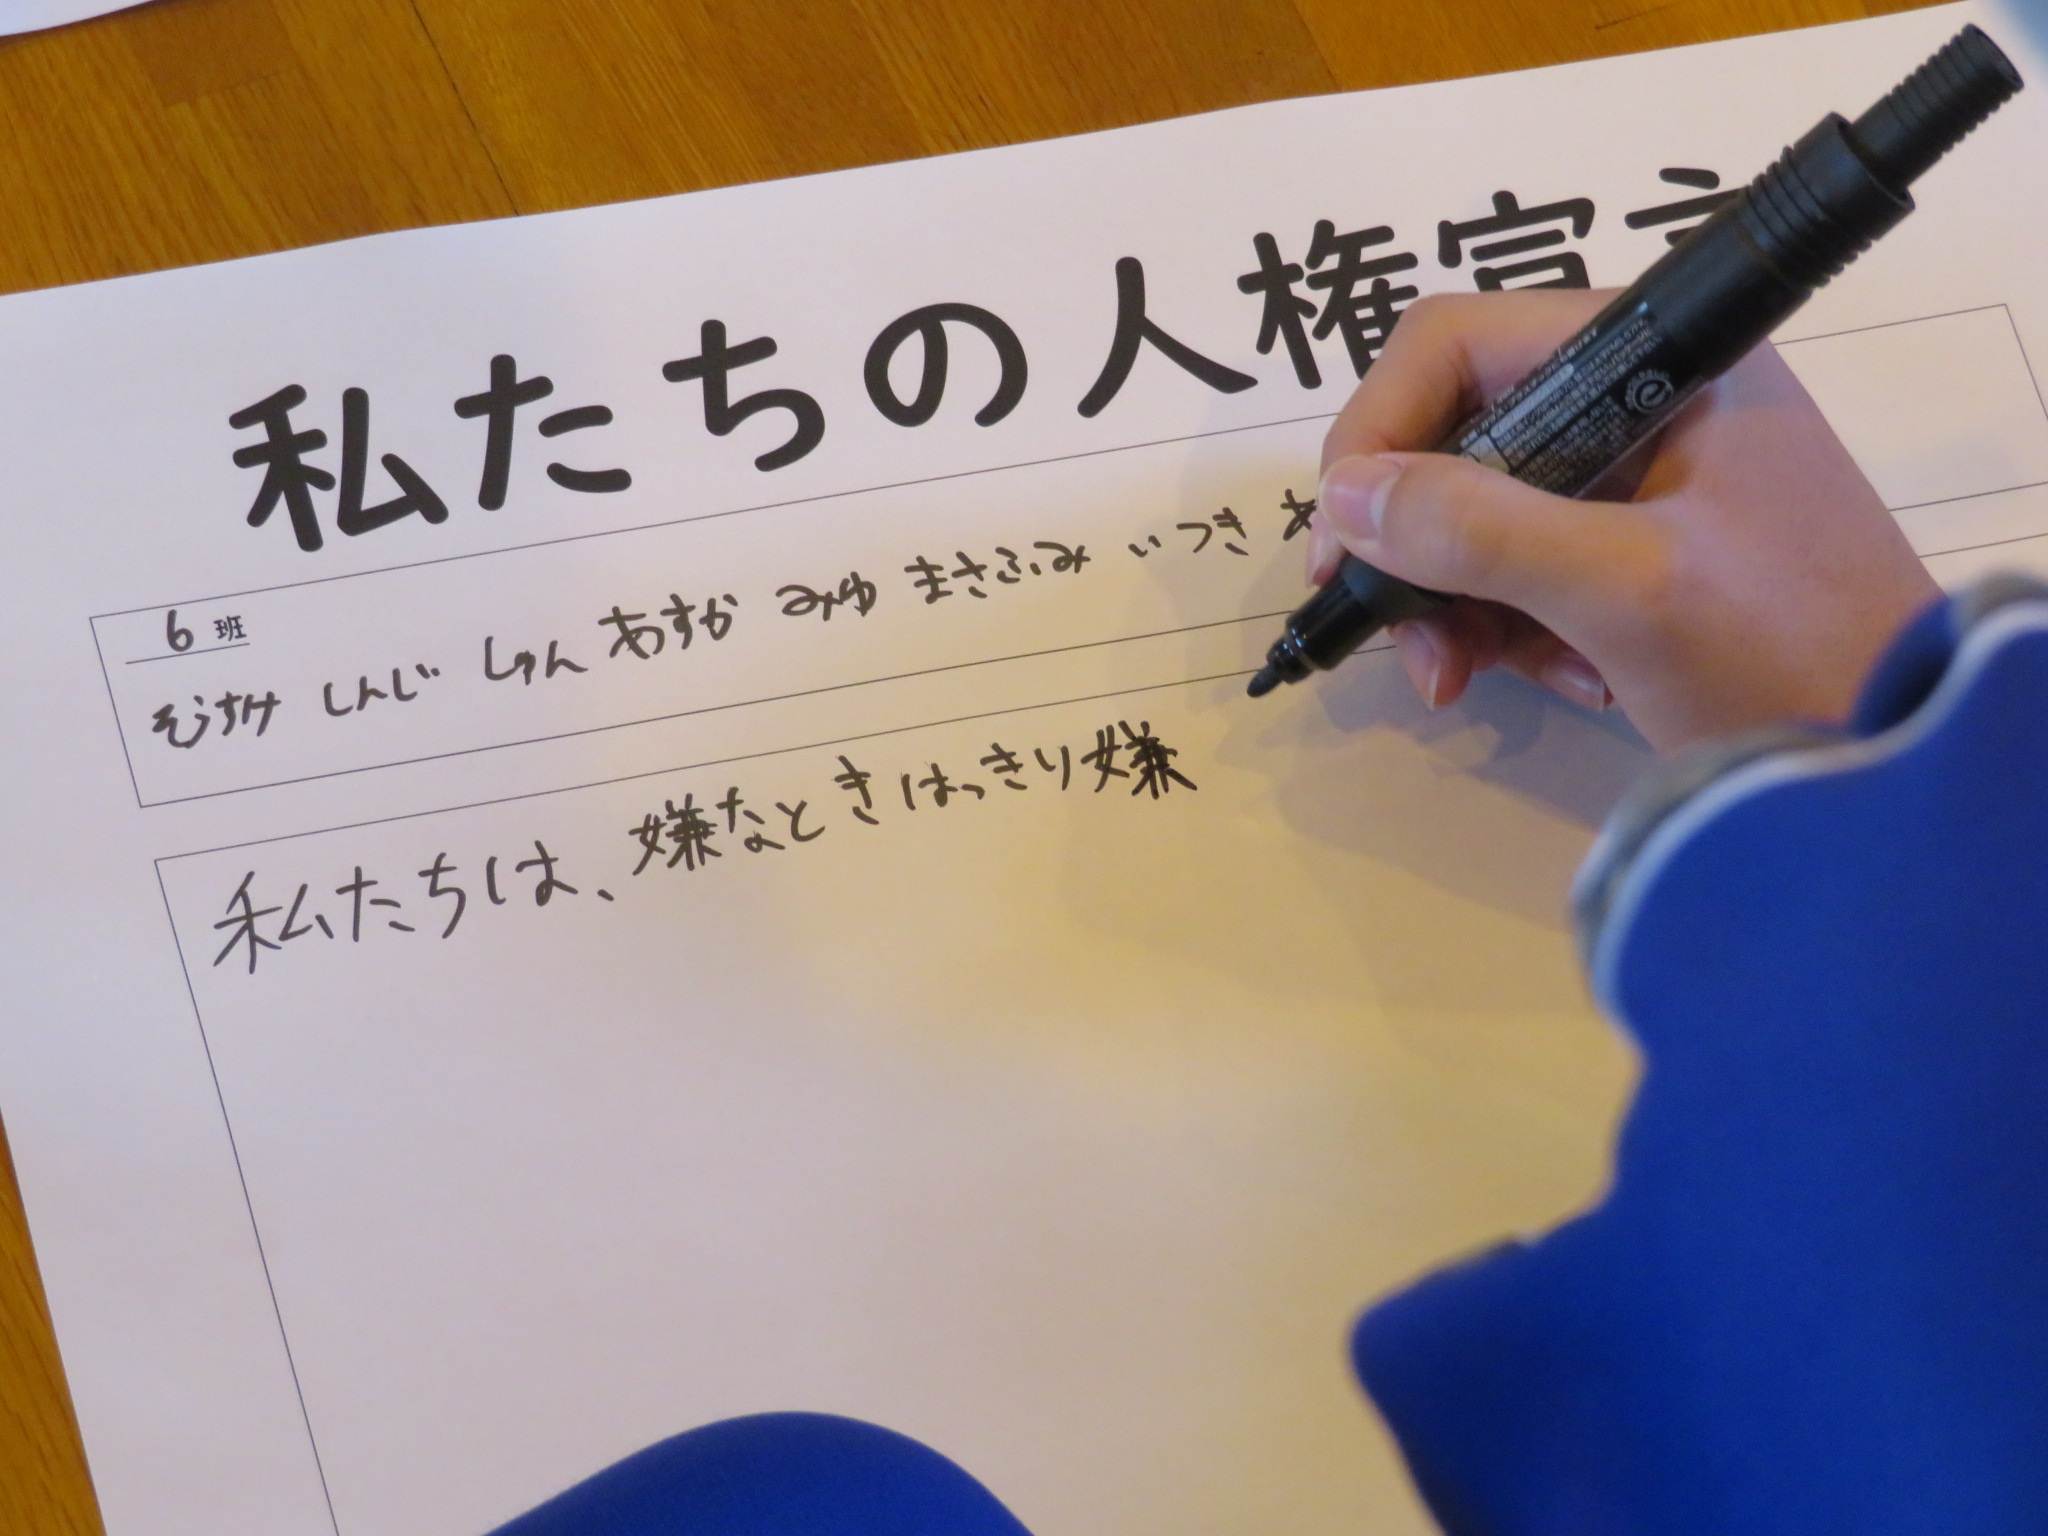 私たちの人権宣
6 班
そうすけ しんじ しゅん あすか みゆ まさふみ いつき あ
私たちは、嫌なときはっきり嫌